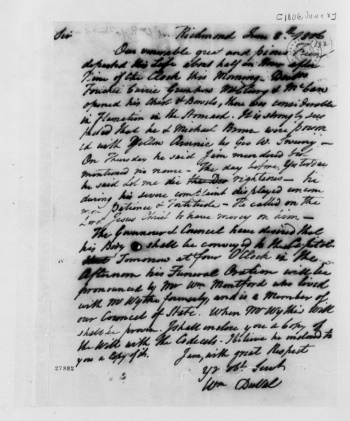 [1806, June 8]
Sir Richmond June 8th 1806
Our venerable great and pious Friend
departed this Life about half an Hour after
Nine of the Clock this Morning. Doctors
Foushee Currie Greenhow McClurg & McCaw
opened his Chest & Bowels, there was considerable
inflamation in the Stomach. It is strongly sus
pected that he & Michael Brown were poison
ed with Yellow Arsenic by Geo W. Sweeny —
On Thursday he said I am murdered but
mentioned no name — The day before Yesterday
he said let me die righteous — he
during his severe complaint displayed uncom
mon Patience & Fortitude — He called on the
Lord Jesus Christ to have mercy on him —
The Governor & Council have desired that
his Body shall be conveyed to the Capitol
Tomorrow at four O'Clock in the
Afternoon his Funeral Oration will be
pronounced by Mr Wm Munford who lived
with Mr Wythe formerly, and is a Member of
our Council of State. When Mr Wythe's Will
shall be proven I shall inclose you a copy of
the Will with the Codicils. I believe he instructed to
you a Copy of it. I am, with great Respect
Yr Obt Servt
Wm DuVal
27882